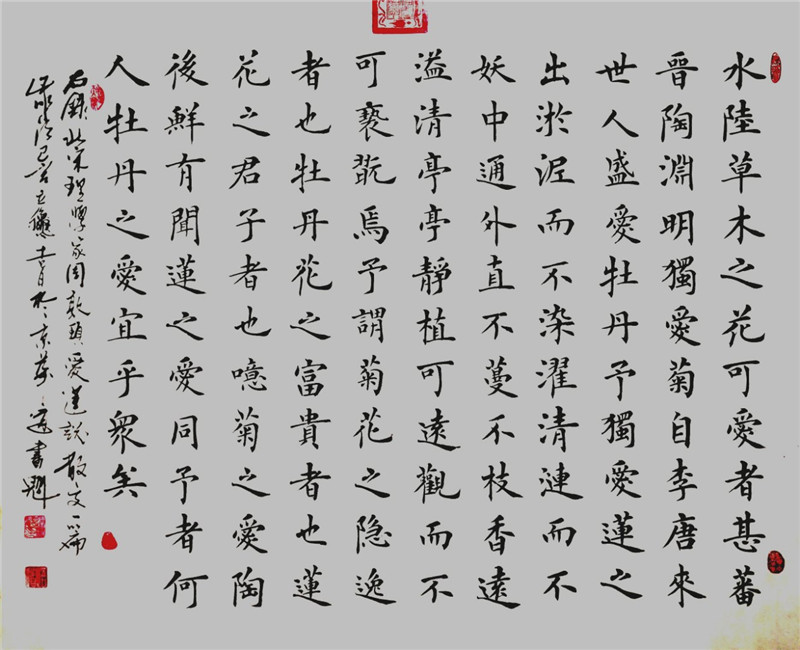 水陸草木之花可愛者甚蕃
晋陶淵明獨愛菊自李唐來
世人盛愛牡丹予獨愛蓮之
出淤泥而不染濯清漣而不
妖中通外直不蔓不枝香遠
溢清亭亭靜植可遠觀而不
可褻翫焉予謂菊花之隐逸
者也牡丹花之富貴者也蓮
花之君子者也噫菊之愛陶
後鮮有聞蓮之愛同予者何
人牡丹之愛宜乎衆矣
右錄北宋理學家周敦頤愛蓮説散文一篇
於京華